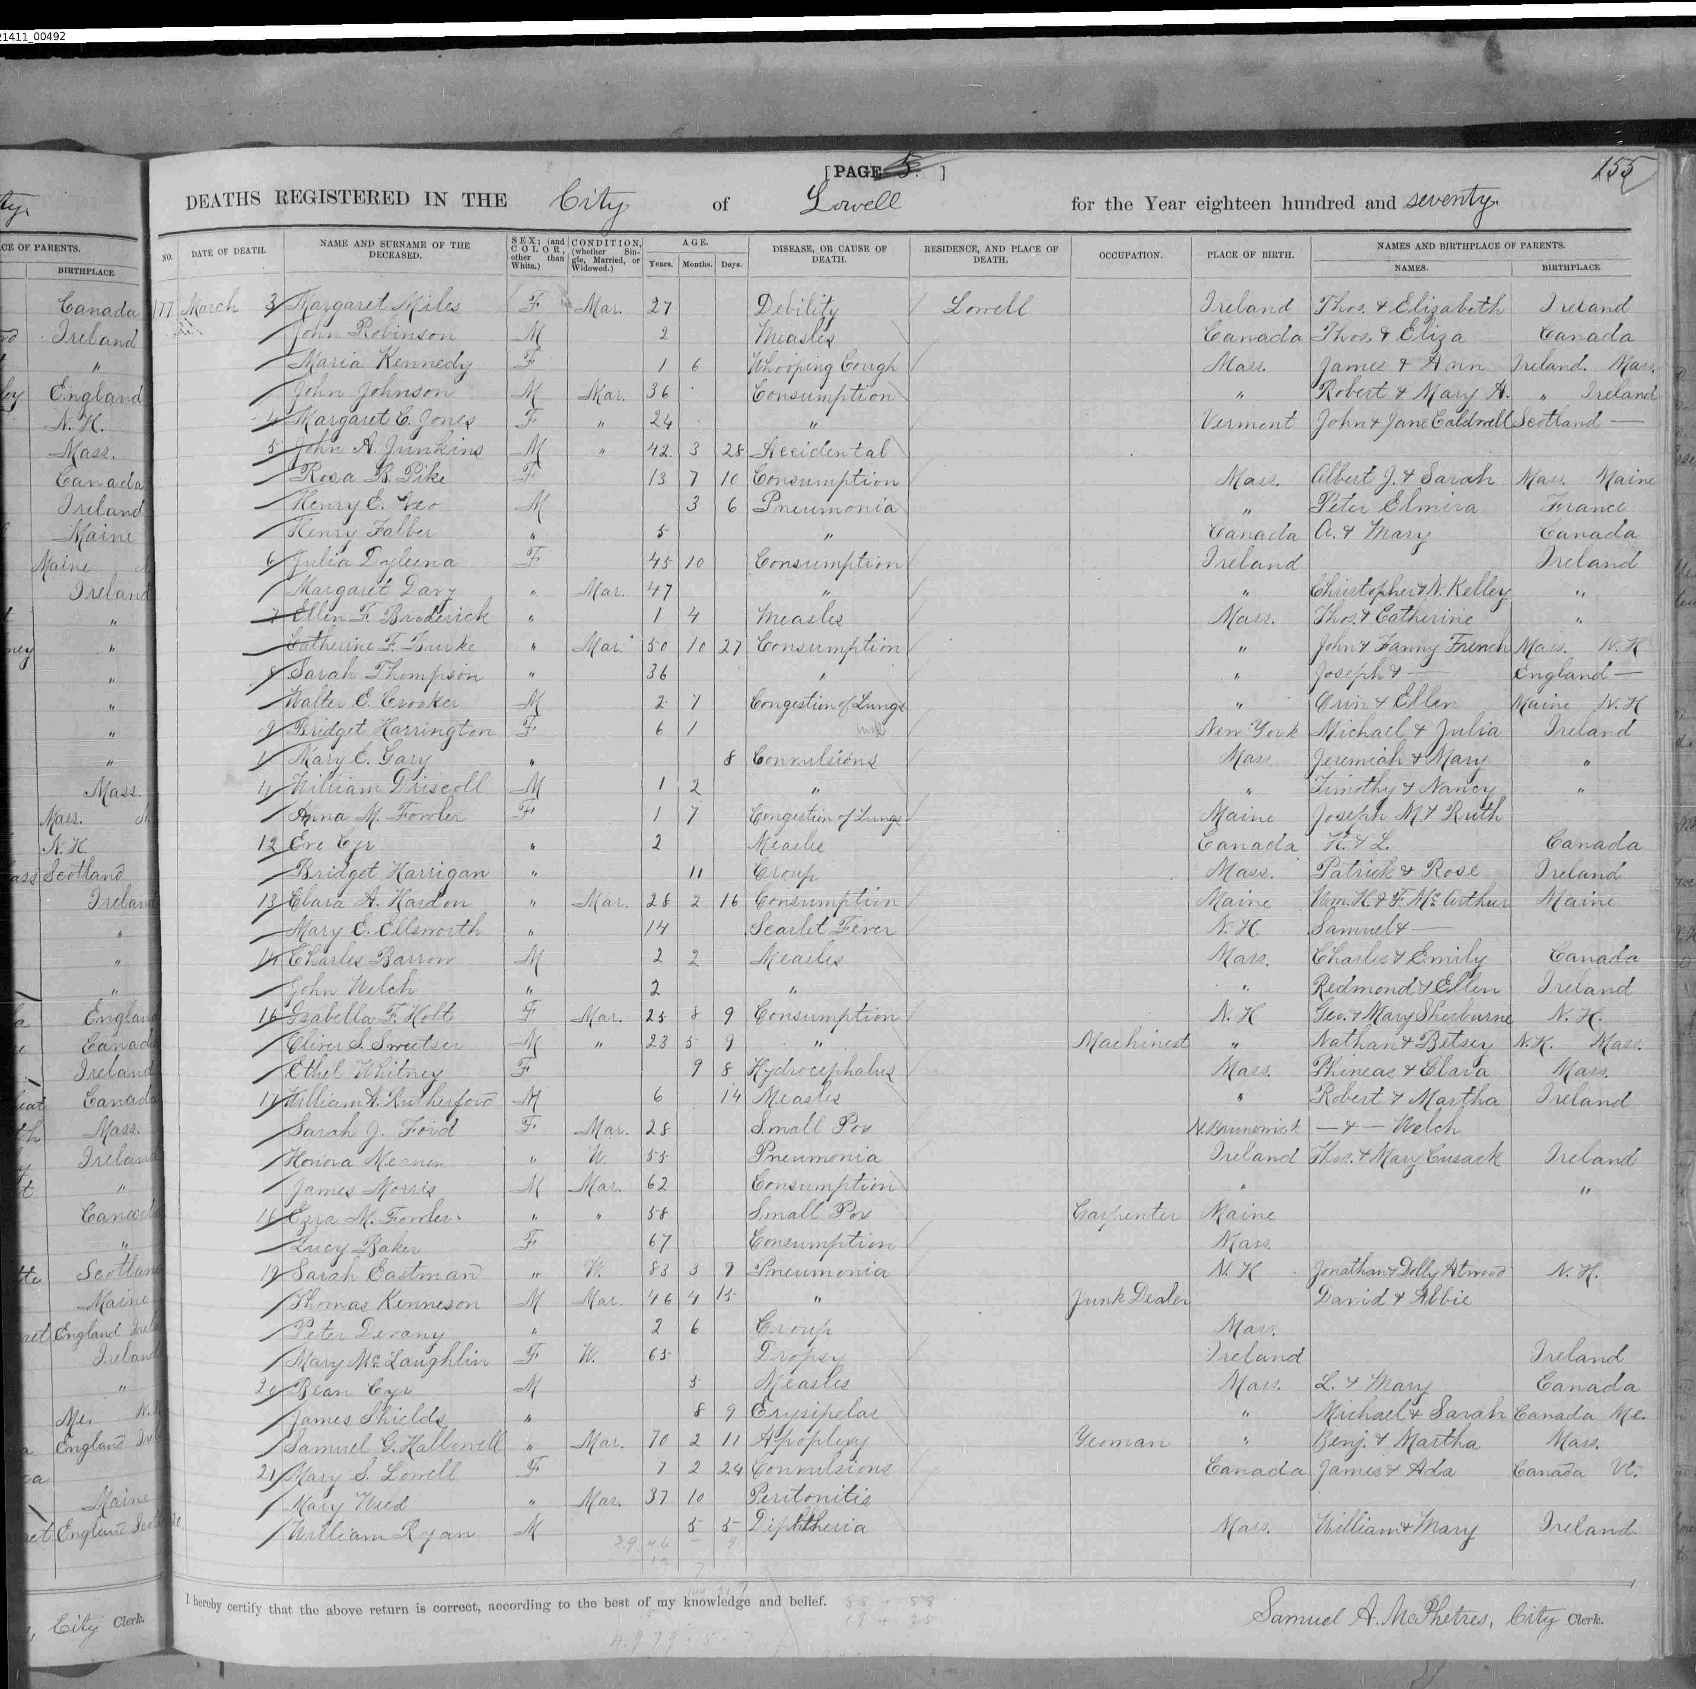 21411_00492
[PAGE 5. ]
155
DEATHS REGISTERED IN THE City of Lowell for the Year eighteen hundred and seventy.
NO. DATE OF DEATH. NAME AND SURNAME OF THE DECEASED. SEX; (and COLOR, other than White.) CONDITION, (whether Single, Married, or Widowed.) AGE. Years. Months. Days. DISEASE, OR CAUSE OF DEATH. RESIDENCE, AND PLACE OF DEATH. OCCUPATION. PLACE OF BIRTH. NAMES AND BIRTHPLACE OF PARENTS. NAMES. BIRTHPLACE
177 March 3 Margaret Miles F Mar. 27 Debility Lowell Ireland Thos. & Elizabeth Ireland
John Robinson M 2 Measles Canada Thos. & Eliza Canada
Maria Kennedy F 1 6 Whooping Cough Mass. James & Ann Ireland. Mass.
John Johnson M Mar. 36 Consumption " Robert & Mary A. " Ireland
4 Margaret E. Jones F " 24 " Vermont John & Jane Caldwell Scotland —
5 John A. Junkins M " 42 3 28 Accidental
Rosa B. Pike F 13 7 10 Consumption Mass. Albert J. & Sarah Mass. Maine
Henry E. M 3 6 Pneumonia " Peter Elmira France
Henry Falber " 5 " Canada A. & Mary Canada
6 Julia F 45 10 Consumption Ireland Ireland
Margaret Davy " Mar. 47 " " Christopher & N. Kelley "
7 Ellen F. Broderick " 1 4 Measles Mass. Thos. & Catherine "
Catherine F. Burke " Mar. 50 10 27 Consumption " John & Fanny French Mass. N.H
8 Sarah Thompson " 36 " " Joseph & — England —
Walter E. Crosker M 2 7 Congestion of Lungs " Orin & Ellen Maine N.H
9 Bridget Harrington F 6 1 New York Michael & Julia Ireland
Mary E. Gary " 8 Convulsions Mass. Jeremiah & Mary "
11 William Driscoll M 1 2 " " Timothy & Nancy "
Anna M. Fowler F 1 7 Congestion of Lungs Maine Joseph M & Ruth
12 Eve Cyr " 2 Measles Canada H. & L. Canada
Bridget Harrigan " 11 Croup Mass. Patrick & Rose Ireland
13 Clara A. Hardon " Mar. 28 2 16 Consumption Maine Wm. H & F. McArthur Maine
Mary E. Ellsworth " 14 Scarlet Fever N.H. Samuel & —
14 Charles Barrow M 2 2 Measles Mass. Charles & Emily Canada
John Welch " 2 " " Redmond & Ellen Ireland
16 Isabella F. Holt F Mar. 28 8 9 Consumption N.H Geo. & Mary Sherburne N.H.
Oliver S. Sweetser M " 23 5 9 " Machinest " Nathan & Betsey N.H. Mass.
Ethel Whitney F 9 8 Hydrocephalus Mass. Phineas & Clara Mass.
17 William A. Rutherford M 6 14 Measles " Robert & Martha Ireland
Sarah J. Ford F Mar. 28 Small Pox N. Brunswick — & — Welch
Honora " W. 55 Pneumonia Ireland Thos. & Mary Cusack Ireland
James Morris M Mar. 62 Consumption " "
18 Ezra M. Fowler " " 58 Small Pox Carpenter Maine
Lucy Baker F 67 Consumption Mass.
19 Sarah Eastman " W. 83 3 9 Pneumonia N.H Jonathan & Dolly Atwood N.H.
Thomas Kenneson M Mar. 46 4 15 " Junk Dealer David & Abbie
Peter Devany " 2 6 Croup Mass.
Mary McLaughlin F W. 65 Dropsy Ireland Ireland
20 Bean Cyr M 5 Measles Mass. L. & Mary Canada
James Shields " 8 9 Erysipelas " Michael & Sarah Canada Me.
Samuel G. Hallowell " Mar. 70 2 11 Apoplexy Yeoman " Benj. & Martha Mass.
21 Mary S. Lowell F 7 2 24 Convulsions Canada James & Ada Canada Vt.
Mary Weed " Mar. 37 10 Peritonitis
William Ryan M 5 5 Diphtheria Mass. William & Mary Ireland.
I hereby certify that the above return is correct, according to the best of my knowledge and belief.
Samuel A. McPhetres, City Clerk.
CE OF PARENTS.
BIRTHPLACE
Canada
Ireland
"
England
N.H.
Mass.
Canada
Ireland
Maine
Maine
Ireland
"
"
"
"
"
"
Mass.
Mass.
N.H.
Scotland
Ireland
"
"
"
England
Canada
Ireland
Canada
Mass.
Ireland
"
Canada
"
Scotland
Maine
England
Ireland
"
Me.
England
Maine
England
City Clerk.